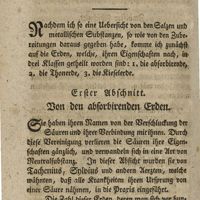 Nachdem ich so eine Uebersicht von den Salzen und
metallischen Substanzen, so wie von den Zube-
reitungen daraus gegeben habe, komme ich zunächst
auf die Erden, welche, ihren Eigenschaften nach, in
drei Klassen getheilt worden sind: 1. die absorbirende,
2. die Thonerde, 3. die Kieselerde.
Erster Abschnitt.
Von den absorbirenden Erden.
Sie haben ihren Namen von der Verschluckung der
Säuren und ihrer Verbindung mit ihnen. Durch
diese Vereinigung verlieren die Säuren ihre Eigen-
schaften gänzlich, und verwandeln sich in eine Art von
Neutralsubstanz. In dieser Absicht wurden sie von
Tachenius, Sylvius und andern Aerzten, welche
wähnten, daß alle Krankheiten ihren Ursprung von
einer Säure nähmen, in die Praxis eingeführt.
Die Zahl dieser Erden, deren man sich vor